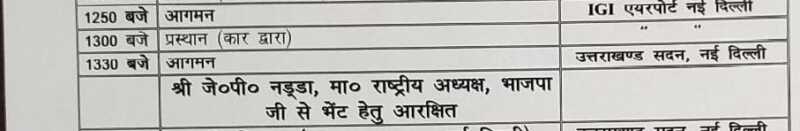 1250 बजे आगमन IGI एयरपोर्ट नई दिल्ली
1300 बजे प्रस्थान (कार द्वारा) " "
1330 बजे आगमन उत्तराखण्ड सदन, नई दिल्ली
श्री जे०पी० नड्डा, मा० राष्ट्रीय अध्यक्ष, भाजपा
जी से भेंट हेतु आरक्षित